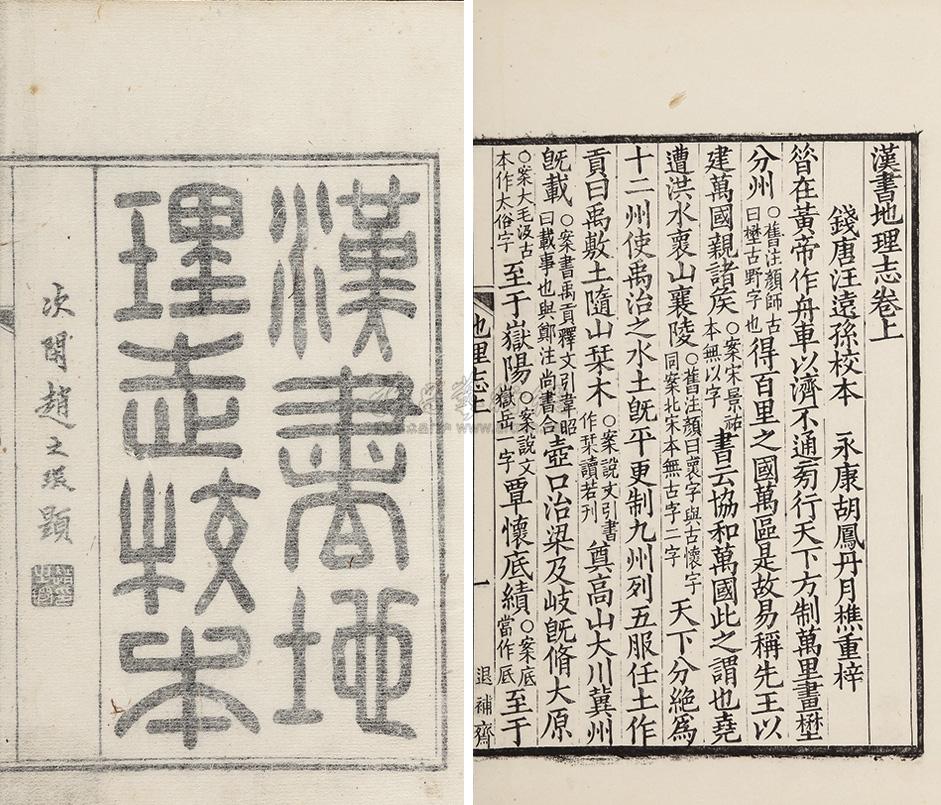 漢書地
理志校本
次閑趙之琛題
漢書地理志卷上
錢唐汪遠孫校本　永康胡鳳丹月樵重梓
昝在黃帝作舟車以濟不通㫄行天下方制萬里畫壄
分州○舊注顏師古曰壄古野字也得百里之國萬區是故易稱先王以
建萬國親諸矦○案宋景祐本無以字書云協和萬國此之謂也堯
遭洪水褱山襄陵○舊注顏曰褱字與古懷字同案北宋本無古字二字天下分絕爲
十二州使禹治之水土旣平更制九州列五服任土作
貢曰禹敷土隨山栞木○案說文引書作栞讀若刊奠高山大川冀州
旣載○案書禹貢釋文引韋昭曰載事也與鄭注尚書合壺口治梁及岐旣脩大原
○案大毛汲古本作太俗字至于嶽陽○案說文嶽岳一字覃懷底績○案底當作厎至于
地理志上　一　退補齋